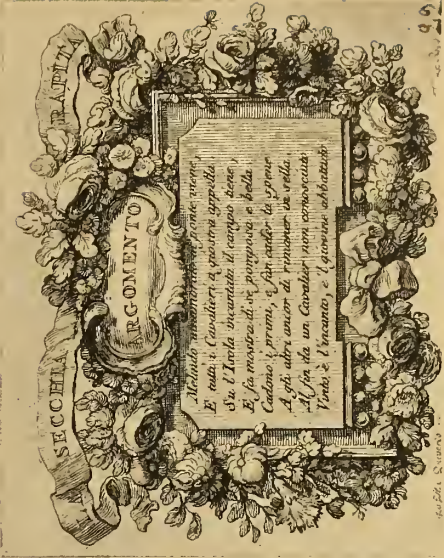 SECCHIA RAPITA
ARGOMENTO
Melindo innamorato al ponte viene,
E tutti i Cavalieri a giostra appella
Su l'Isola incantata il campo tiene,
E fa mostra di se pomposa e bella
Cadono i primi, e fan cader la spene
A gli altri ancor di rimaner in sella.
Al fin da un Cavalier non conosciuto
Vinto è l'incanto, e'l giovane abbattuto